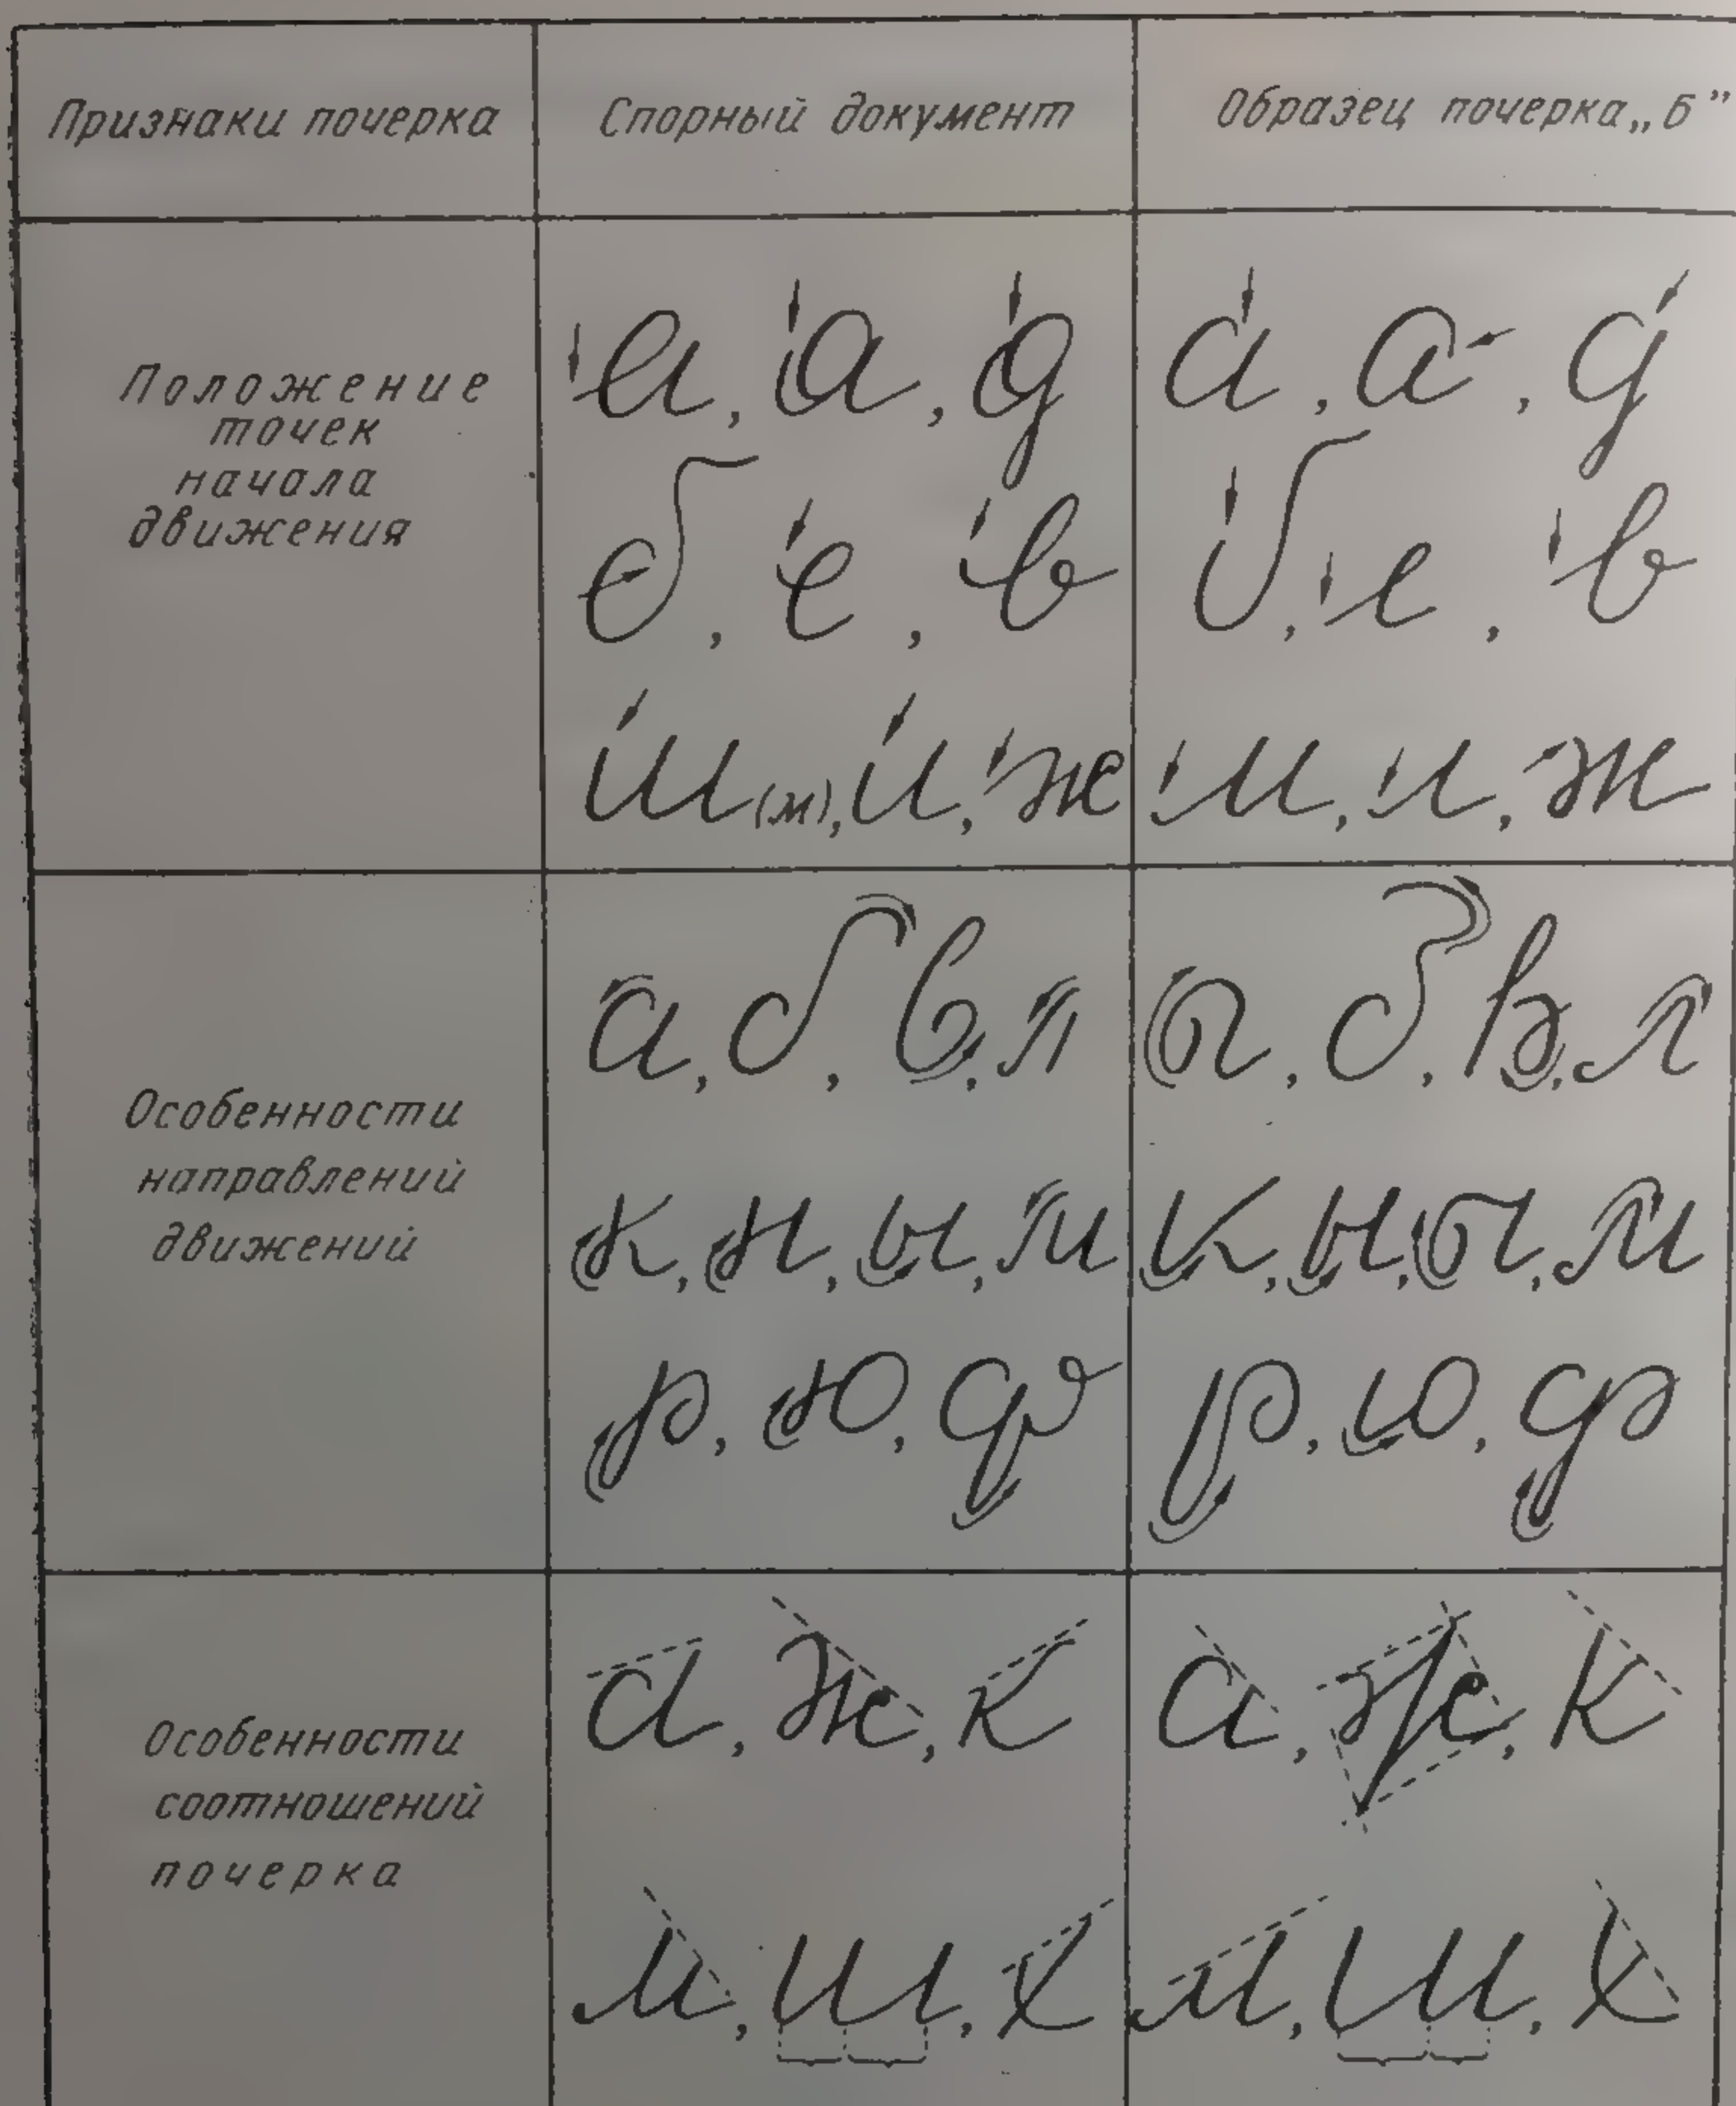 Признаки почерка
Спорный документ
Образец почерка „Б”
Положение
точек
начала
движения
а, а, д
б, е, в
ш(м), и, ж
а, а, д
б, е, в
м, л, ж
Особенности
направлений
движений
а, б, в, л
к, н, ы, м
р, ю, ф
а, б, в, л
к, н, а, м
р, ю, ф
Особенности
соотношений
почерка
а, ж, к
м, ш, х
а, ж, к
м, ш, х